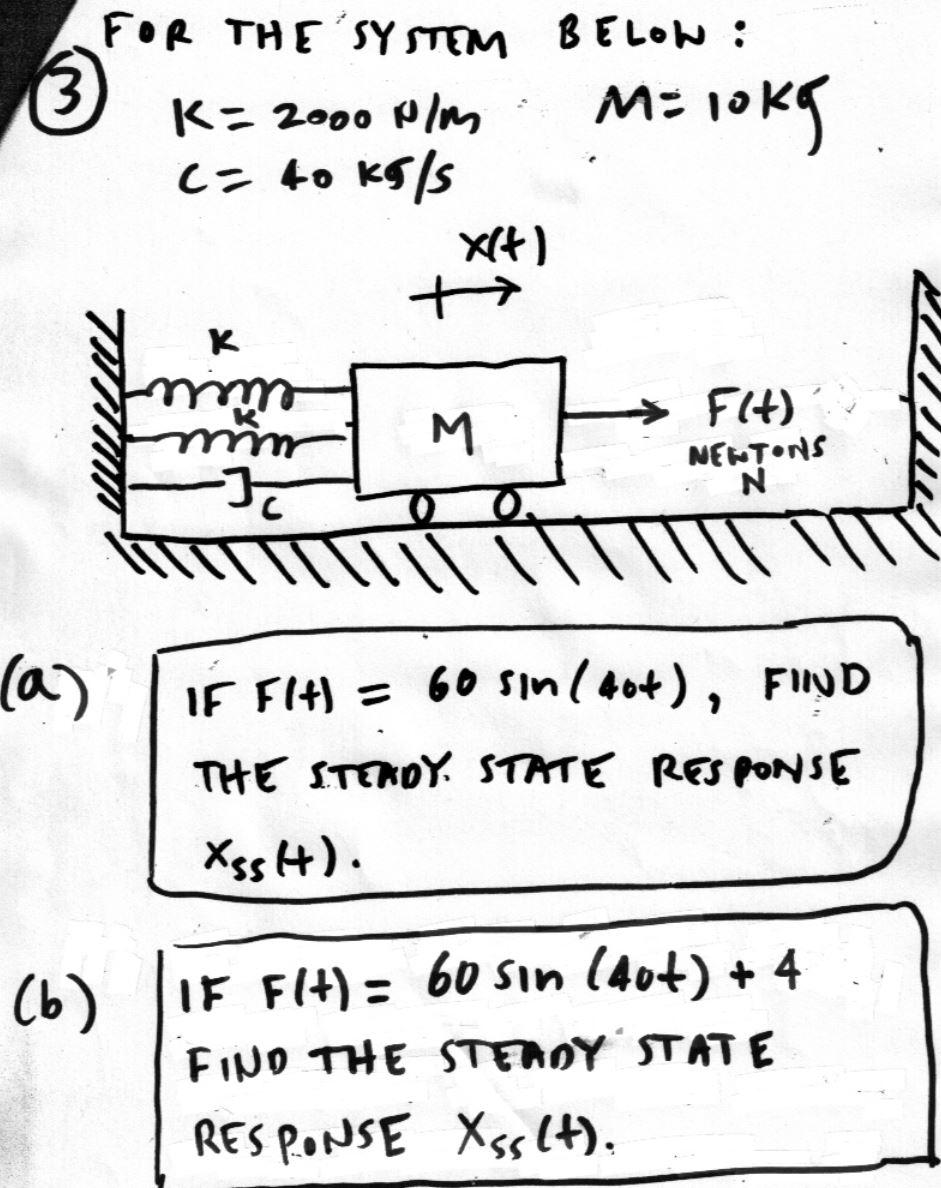 FOR THE SYSTEM BELOW :
3
K = 2000 N/m M = 10 Kg
C = 40 kg/s
x(t)
K
K
C
M
F(t)
NEWTONS
N
(a)
IF F(t) = 60 sin(40t), FIIND
THE STEADY. STATE RESPONSE
Xss(t).
(b)
IF F(t) = 60 sin (40t) + 4
FIND THE STEADY STATE
RESPONSE Xss(t).